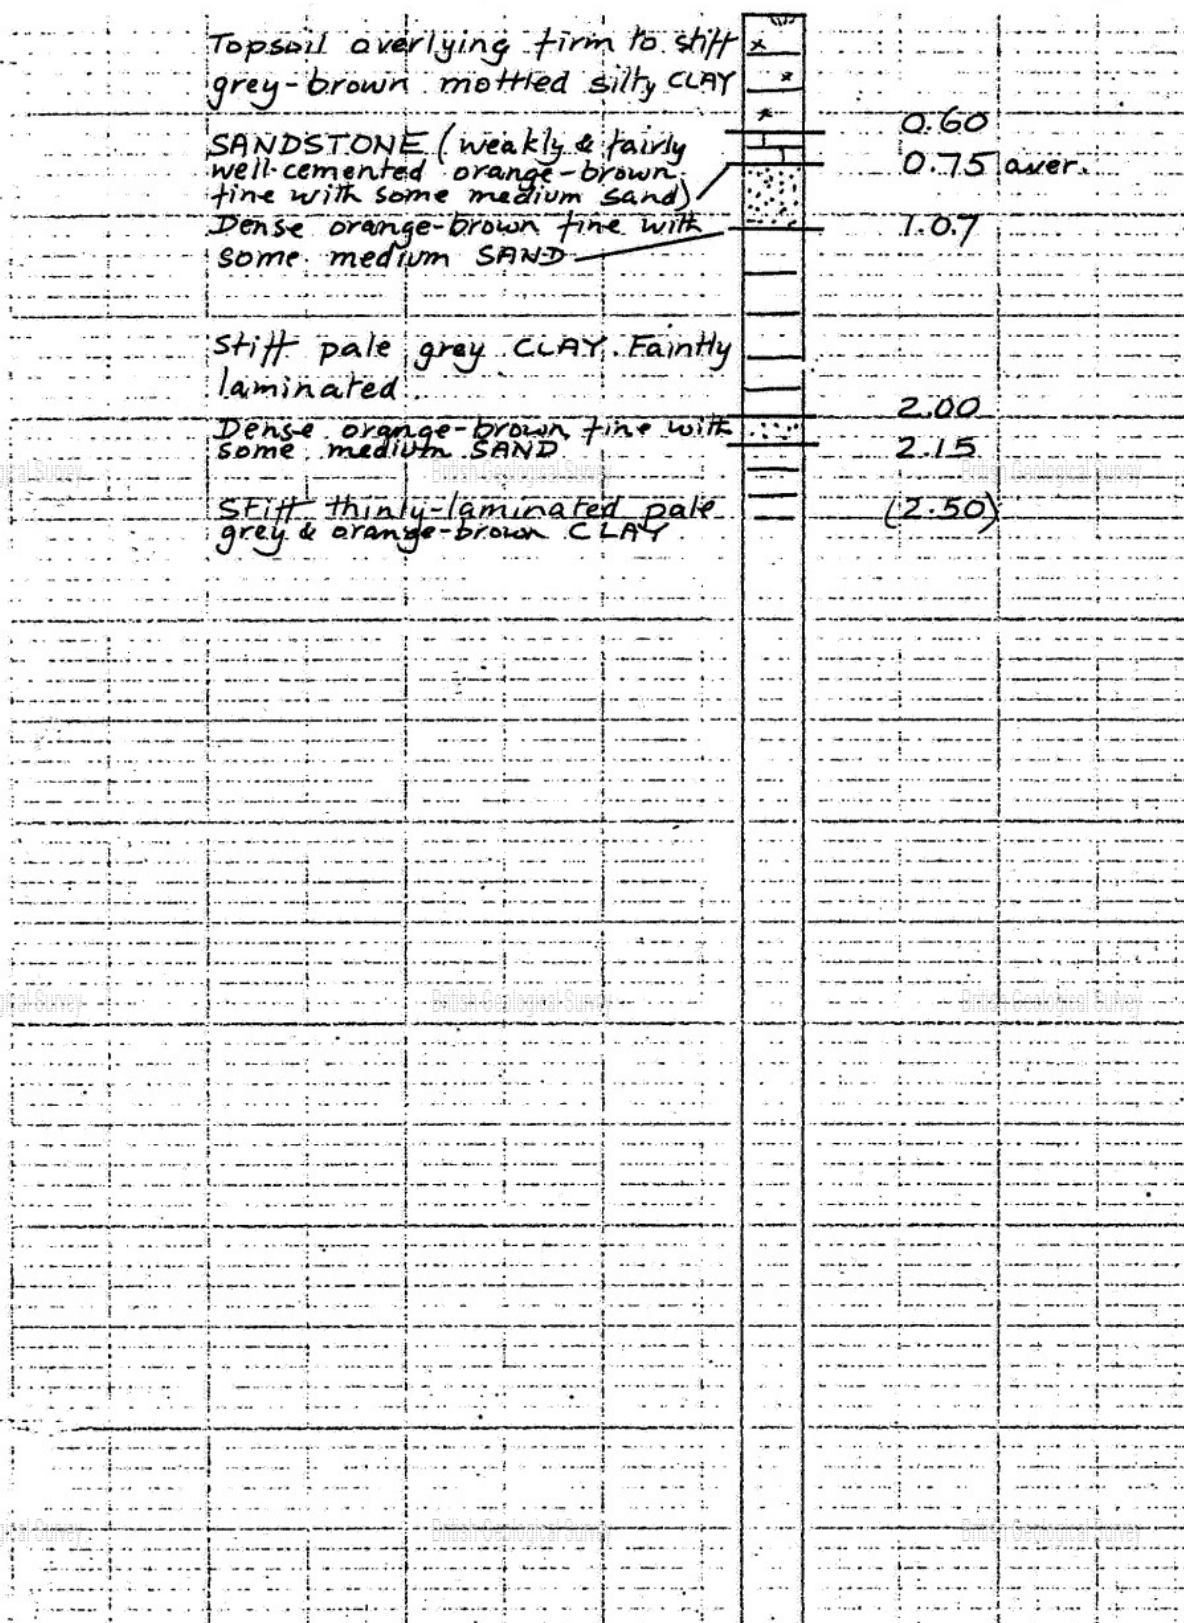 Topsoil overlying firm to stiff
grey-brown mottled silty CLAY
0.60
SANDSTONE (weakly & fairly
well-cemented orange-brown
fine with some medium sand)
0.75 aver.
Dense orange-brown fine with
some medium SAND
1.07
Stiff pale grey CLAY. Faintly
laminated.
2.00
Dense orange-brown fine with
some medium SAND
2.15
Stiff thinly-laminated pale
grey & orange-brown CLAY
(2.50)
British Geological Survey
British Geological Survey
British Geological Survey
British Geological Survey
British Geological Survey
British Geological Survey